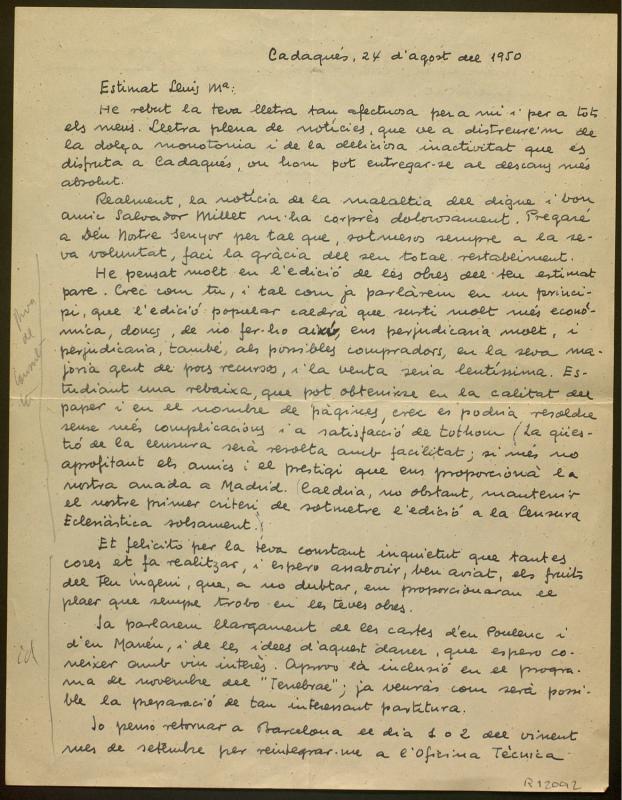 Cadaqués, 24 d'agost del 1950
Estimat Lluis Mª:
He rebut la teva lletra tan afectuosa per a mi i per a tots
els meus. Lletra plena de notícies, que ve a distreure'm de
la dolça monotonia i de la deliciosa inactivitat que es
disfruta a Cadaqués, on hom pot entregar-se al descans més
absolut.
Realment, la notícia de la malaltia del digne i bon
amic Salvador Millet m'ha corprès dolorosament. Pregaré
a Déu Nostre Senyor per tal que, sotmesos sempre a la se-
va voluntat, faci la gràcia del seu total restabliment.
He pensat molt en l'edició de les obres del teu estimat
pare. Crec com tu, i tal com ja parlàrem en un princi-
pi, que l'edició popular caldrà que surti molt més econò-
mica, doncs, de no fer-ho així, ens perjudicaria molt, i
perjudicaria, també, als possibles compradors, en la seva ma-
joria gent de pocs recursos, i la venta seria lentíssima. Es-
tudiant una rebaixa, que pot obtenirse en la calitat del
paper i en el nombre de pàgines, crec es podria resoldre
sense més complicacions i a satisfacció de tothom (La qües-
tió de la censura serà resolta amb facilitat; si més no
aprofitant els amics i el prestigi que ens proporcionà la
nostra anada a Madrid. (Caldria, no obstant, mantenir
el nostre primer criteri de sotmetre l'edició a la Censura
Eclesiàstica solsament.)
Et felicito per la teva constant inquietut que tantes
coses et fa realitzar, i espero assaborir, ben aviat, els fruits
del teu ingeni, que, a no dubtar, em proporcionaran el
plaer que sempre trobo en les teves obres.
Ja parlarem llargament de les cartes d'en Poulenc i
d'en Manén, i de les idees d'aquest darrer, que espero co-
neixer amb viu interès. Aprovo la inclusió en el progra-
ma de novembre del "Tenebrae"; ja veuràs com serà possi-
ble la preparació de tan interessant partitura.
Jo penso retornar a Barcelona el dia 1 o 2 del vinent
mes de setembre per reintegrar-me a l'Oficina Tècnica
id
R 12092